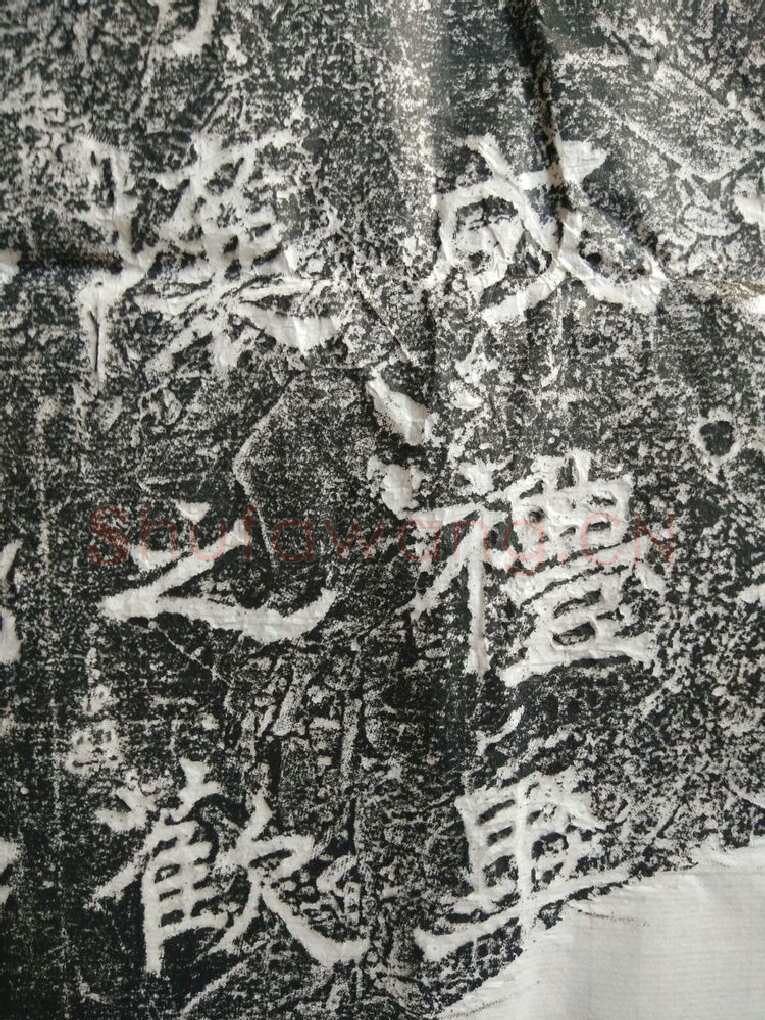 成禮畢
漢之歡
Shufawang.CN